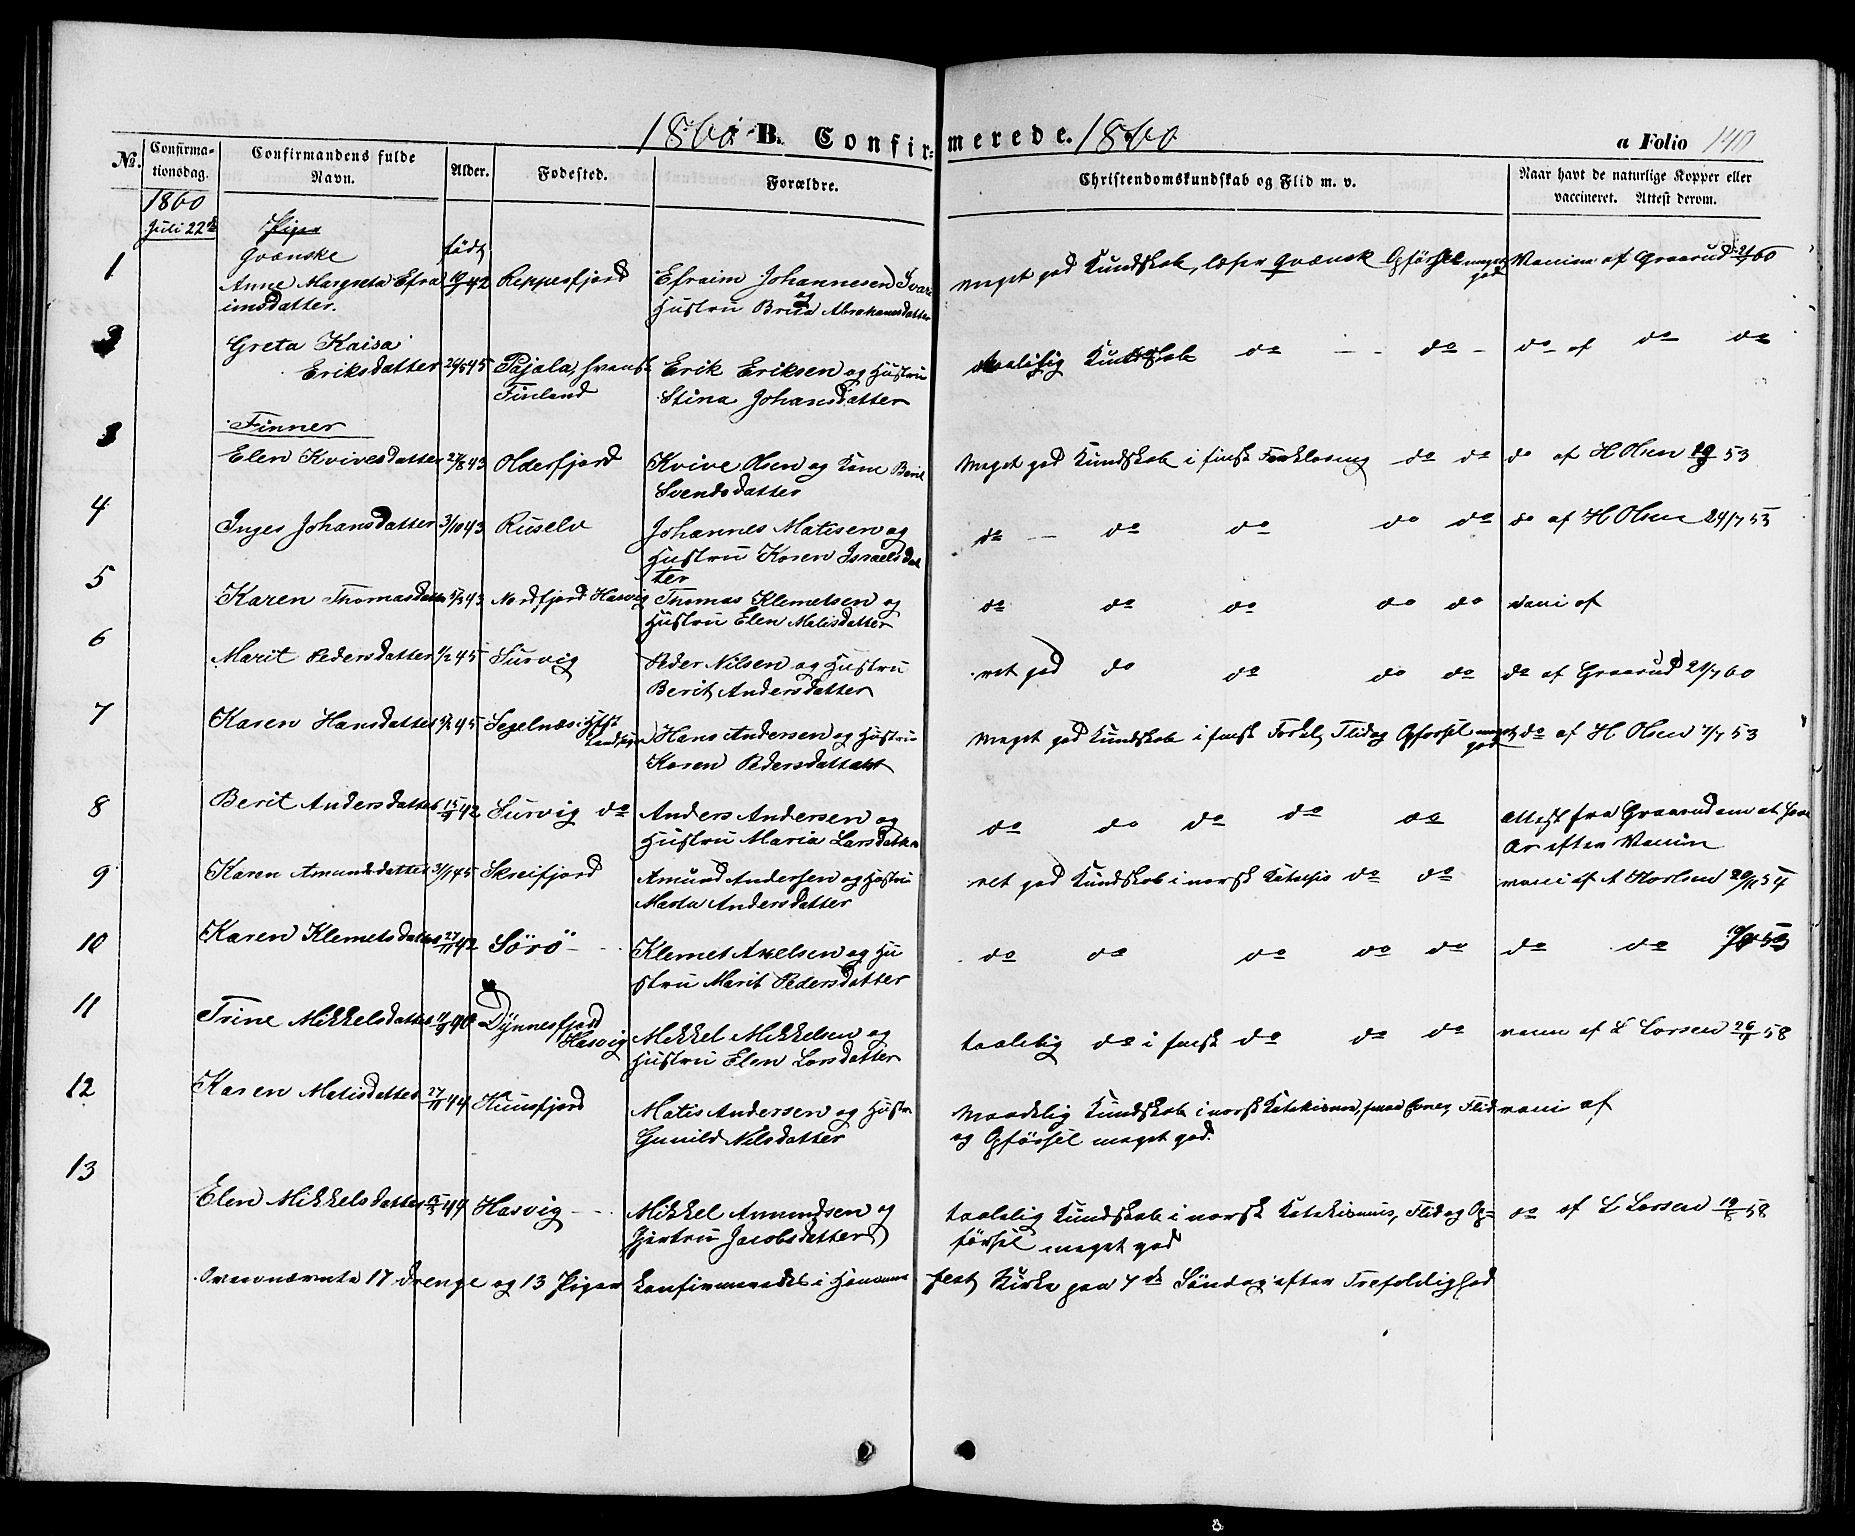 1860 B. Confirmerede. 1860
a Folio 140
No. Confirmationsdag. Confirmandens fulde Navn. Alder. Fødested. Forældre. Christendomskundskab og Flid m. v. Naar havt de naturlige Kopper eller vaccineret. Attest derom.
1860
Juli 22de Piger
Qvænske født
1 Anne Margreta Efra Reppefjord Efraim Johannesen meget god Kundskab, læser Qvænsk Opførsel meget god Vaccine af Graarud
imsdatter. Hustru Brita Abrahamsdatter
Greta Kaisa
Eriksdatter 45 Pajala, svensk Erik Eriksen og Hustru taalelig Kundskab do do do af do do
Finland Stina Johansdatter
Finner
3 Elen Kvivesdatter 27/8 43 Olderfjord Kvive Olsen og Kone Berit Meget god Kundskab i finsk Forklaring do do do af H Olsen 53
Svendsdatter
4 Inger Johansdatter 3/10 43 Ruselv Johannes Matisen og do do do do do do af H Olsen 24/7 53
Hustru Karen Israelsdat
ter
5 Karen Thomasdatter 43 Nordfjord Hasvig Thomas Klemetsen og do do do do do vacci af
Hustru Elen Matisdatter
6 Marit Pedersdatter 1/2 45 Survig Peder Nilsen og Hustru ret god do do do do do af Graarud 21/7 60
Berit Andersdatter
7 Karen Hansdatter 45 Segelnæs Hans Andersen og Hustru Meget god Kundskab i finsk Forkl, Flid og Opførsel meget god do af H Olsen 7/7 53
Karen Pedersdatter
8 Berit Andersdatter 42 Survig do Anders Andersen og do do do do do Attest fra Graarud om at have
Hustru Maria Larsdatter Ar efter Vaccin
9 Karen Amundsdatter 3/1 45 Skreifjord Amund Andersen og Hustru ret god Kundskab i norsk do do vacci af A Karlsen 54
Marta Andersdatter
10 Karen Klemetsdatter 42 Sørø Klemet Axelsen og Hu do do do do do do do
stru Marit Pedersdatter
11 Trine Mikkelsdatter 40 Dÿnnesfjord
Hasvig Mikkel Mikkelsen og taalelig do i finsk do do do vaccin af L Larsen 58
Hustru Elen Larsdatter
12 Karen Matisdatter 44 Matis Andersen og Hustru Maadelig Kundskab i norsk Katekismus, Flid vacci af
Gunild Nilsdatter og Opførsel meget god.
13 Elen Mikkelsdatter 44 Hasvig Mikkel Amundsen og taalelig Kundskab i norsk Katekismus, Flid og Op= do af L Larsen 58
Gjertru Jacobsdatter førsel meget god
Ovennævnte 17 drenge og 13 Piger konfirmeredes i Hammerfest Kirke paa 7de Søndag efter Trefoldighed